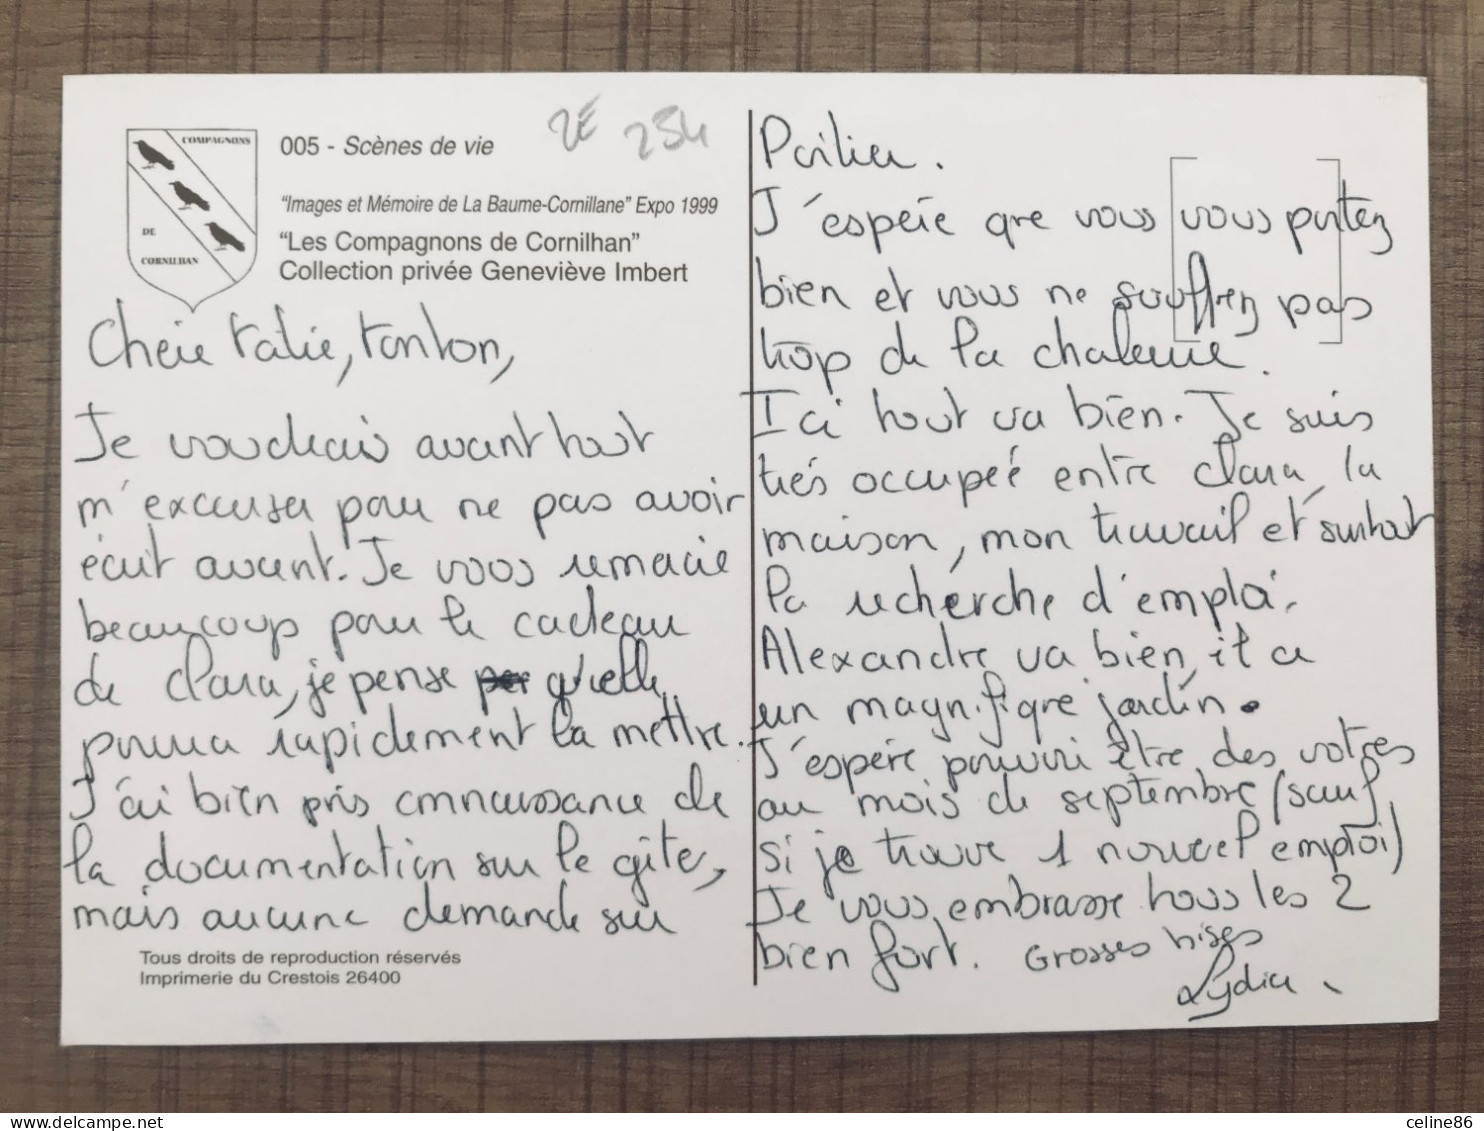 COMPAGNONS
DE
CORNILHAN
005 - Scènes de vie
2€ 254
"Images et Mémoire de La Baume-Cornillane" Expo 1999
"Les Compagnons de Cornilhan"
Collection privée Geneviève Imbert
Chère tatie, tonton,
Je voudrais avant tout
m'excuser pour ne pas avoir
écrit avant. Je vous remercie
beaucoup pour le cadeau
de Clara, je pense qu'elle
pourra rapidement la mettre.
J'ai bien pris connaissance de
la documentation sur le gîte,
mais aucune demande sur
Tous droits de reproduction réservés
Imprimerie du Crestois 26400
J'espère que vous vous portez
bien et vous ne souffrez pas
trop de la chaleur.
Ici tout va bien. Je suis
très occupée entre Clara, la
maison, mon travail et surtout
la recherche d'emploi.
Alexandre va bien, il a
un magnifique jardin.
J'espère pouvoir être des votres
au mois de septembre (sauf
si je trouve 1 nouvel emploi)
Je vous embrasse tous les 2
bien fort. Grosses bises
Lydia.
celine86